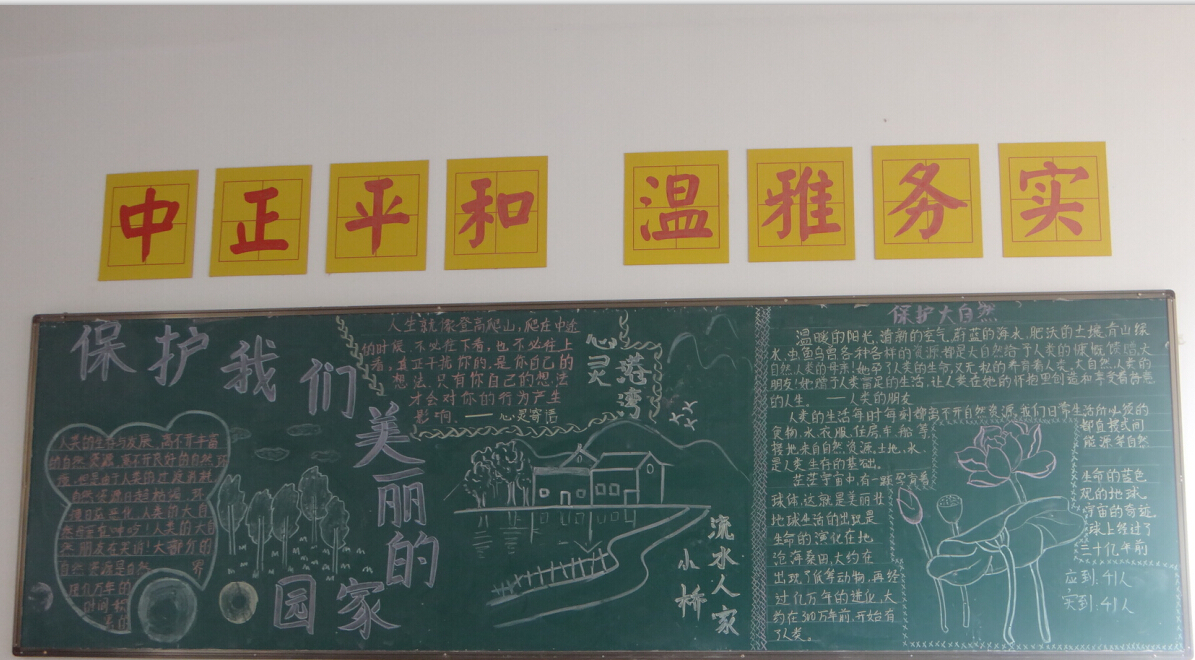 中正平和 温雅务实
保护我们美丽的园家
人生就像登高爬山，爬在中途
的时候，不必往下看，也不必往上
看；真正干扰你的，是你自己的
想法，只有你自己的想法
才会对你的行为产生
影响。——心灵寄语
心灵港湾
人类的生存与发展，离不开丰富
的自然资源，离不开良好的自然环
境
自然资源日趋枯竭，环
境日益恶化，人类的大自
人类的大自
然朋友在哭诉！大部分的
自然资源是自然
几万年的
时间
小桥
流水人家
保护大自然
温暖的阳光，清新的空气，蔚蓝的海水，肥沃的土壤，青山绿
水，虫鱼鸟兽各种各样的资源都是大自然给于人类的慷慨馈赠，大
自然，人类的母亲！她孕了人类的生命，又无私的养育着人类，大自然，人类的
朋友！她赠于人类富足的生活，让人类在她的怀抱里创造和享受着善意
的人生。——人类的朋友
人类的生活每时每刻都离不开自然资源，我们日常生活所必须的
食物、水、衣服、住房、车、船等，都直接或间
接地来自自然资源，土地、水、能源等自然
是人类生存的基础。
茫茫宇宙中，有一颗孕育着生命的蓝色
球体，这就是美丽壮观的地球。
地球生活的出现是宇宙的奇迹，
生命的演化在地球上经过了
沧海桑田，大约在三十亿年前
出现了低等动物，再经
过亿万年的进化，大
约在300万年前，开始有
了人类。
应到：41人
实到：41人